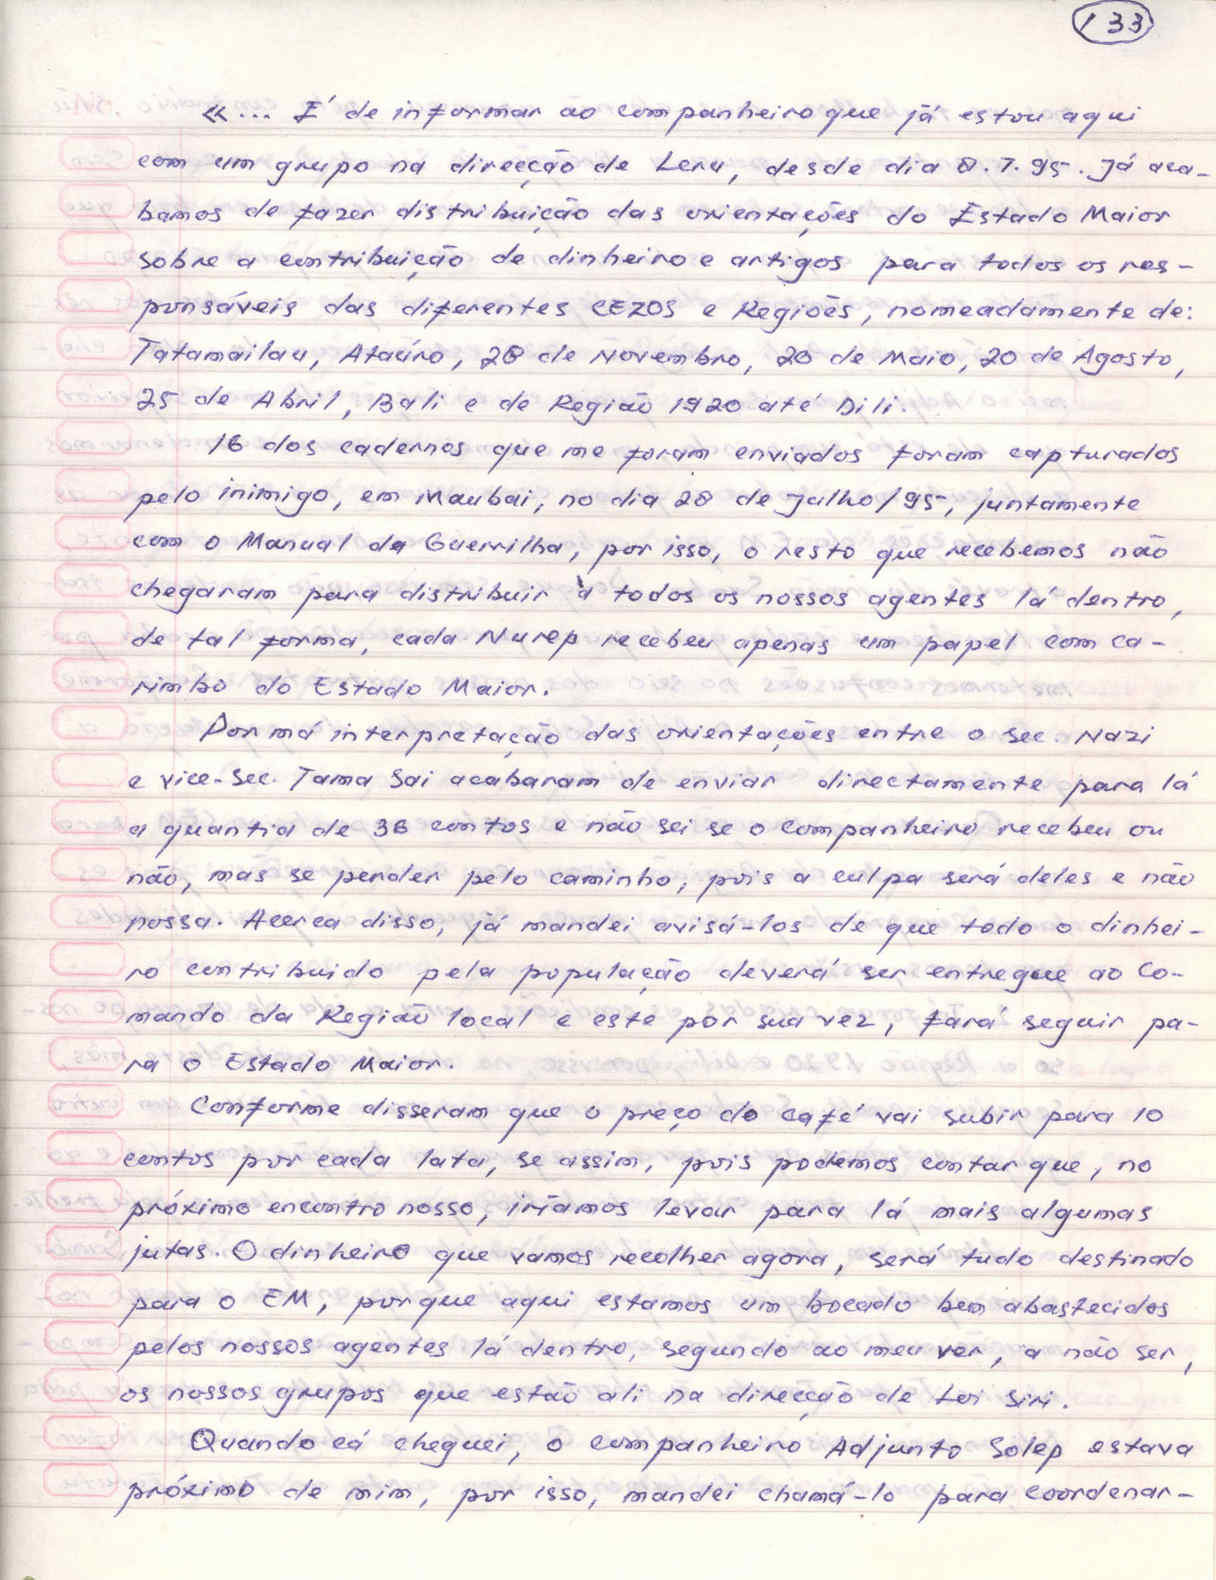 133
«... É de informar ao companheiro que já estou aqui
com um grupo na direcção de Leru, desde dia 8.7.95. Já aca-
bamos de fazer distribuição das orientações do Estado Maior
sobre a contribuição de dinheiro e artigos para todos os res-
ponsáveis das diferentes CEZOS e Regiões, nomeadamente de:
Tatamailau, Ataúro, 28 de Novembro, 20 de Maio, 20 de Agosto,
25 de Abril, Bali e de Região 1920 até Dili.
16 dos cadernos que me foram enviados foram capturados
pelo inimigo, em Maubai, no dia 28 de Julho/95, juntamente
com o Manual da Guerrilha, por isso, o resto que recebemos não
chegaram para distribuir à todos os nossos agentes lá dentro,
de tal forma, cada Nurep recebeu apenas um papel com ca-
rimbo do Estado Maior.
Por má interpretação das orientações entre o Sec. Nazi
e vice-Sec. Tama Sai acabaram de enviar directamente para lá
a quantia de 36 contos e não sei se o companheiro recebeu ou
não, mas se perder pelo caminho, pois a culpa será deles e não
nossa. Acerca disso, já mandei avisá-los de que todo o dinhei-
ro contribuido pela população deverá ser entregue ao Co-
mando da Região local e este por sua vez, fará seguir pa-
ra o Estado Maior.
Conforme disseram que o preço do café vai subir para 10
contos por cada lata, se assim, pois podemos contar que, no
próximo encontro nosso, iríamos levar para lá mais algumas
jutas. O dinheiro que vamos recolher agora, será tudo destinado
para o EM, porque aqui estamos um bocado bem abastecidos
pelos nossos agentes lá dentro, segundo ao meu ver, a não ser,
os nossos grupos que estão ali na direcção de Loi Siri.
Quando cá cheguei, o companheiro Adjunto Solep estava
próximo de mim, por isso, mandei chamá-lo para coordenar-